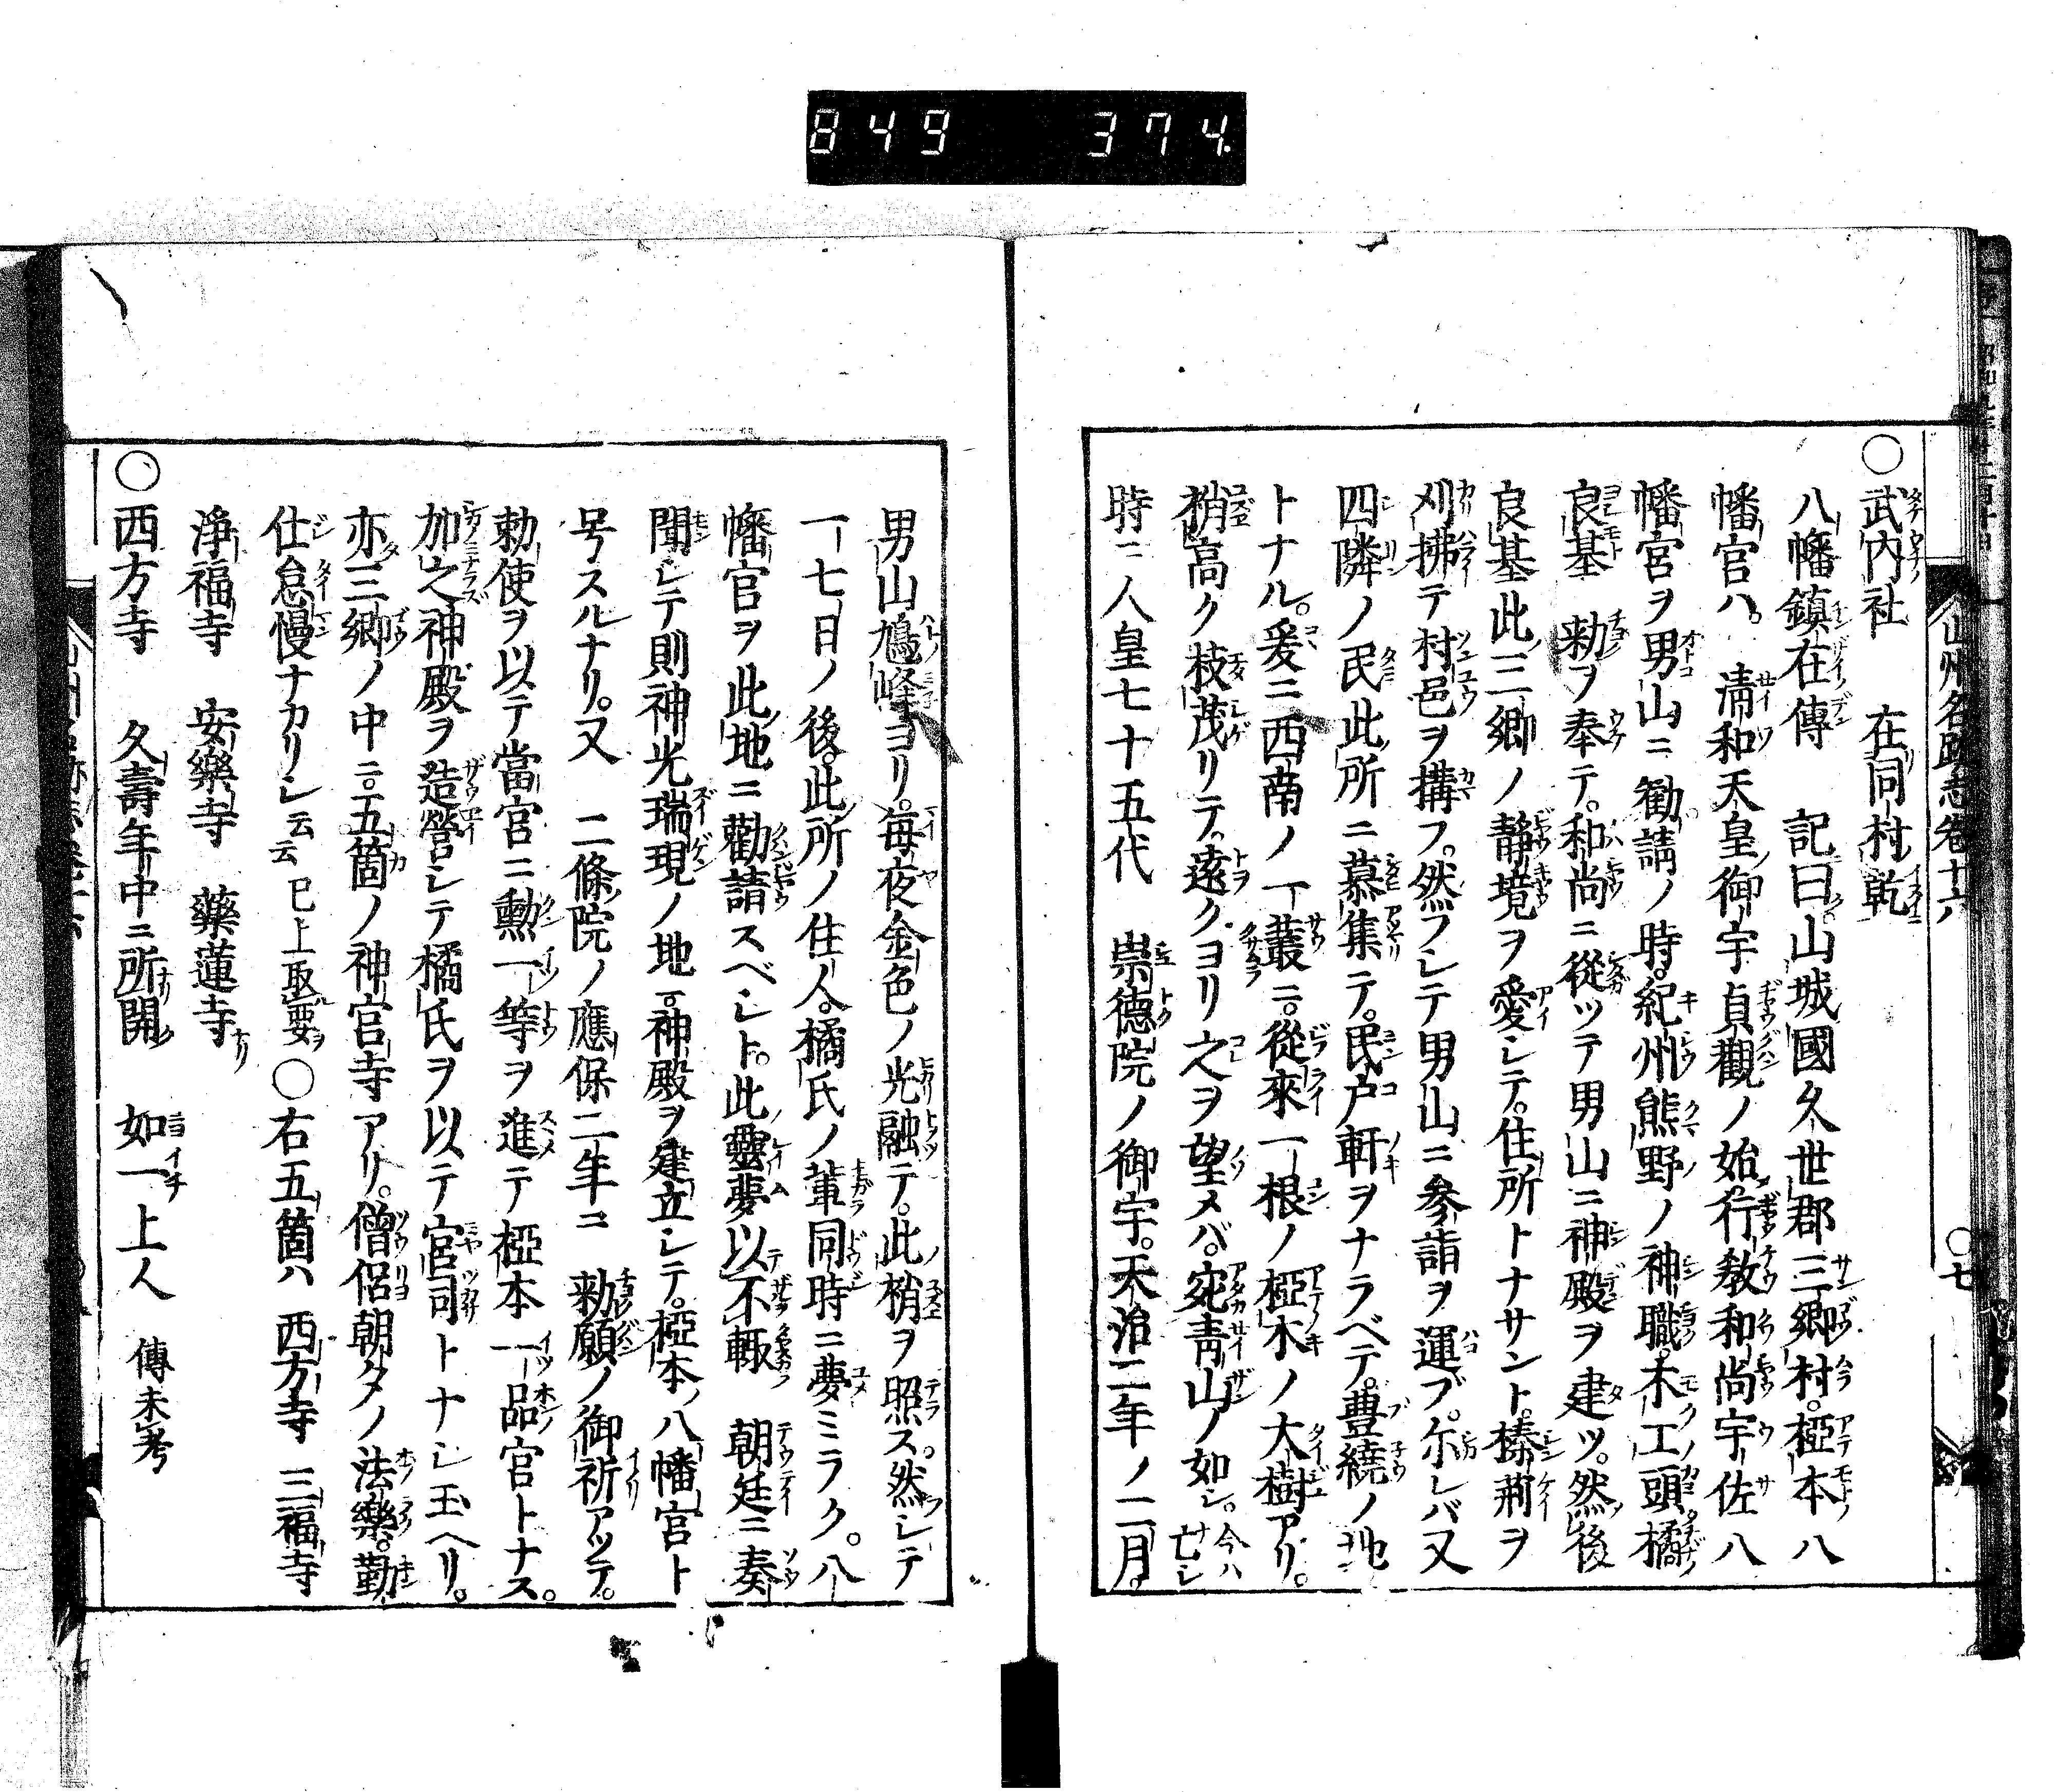 849 374.
山州名跡志卷十六 ○七
○武内社 在同村乾
八幡鎮在傳 記曰山城國久世郡三郷村。椏本八
幡宮ハ。清和天皇御宇貞觀ノ始。行教和尚宇佐八
幡宮ヲ男山ニ勸請ノ時。紀州熊野ノ神職。木工頭。橘
良基 勅ヲ奉テ。和尚ニ從ツテ男山ニ神殿ヲ建ツ。然後
良基此三郷ノ靜境ヲ愛シテ。住所トナサント。榛荊ヲ
刈拂テ村邑ヲ構フ。然フシテ男山ニ參詣ヲ運ブ。尓レバ又
四隣ノ民此所ニ慕集テ。民戸軒ヲナラベテ。豊繞ノ地
トナル。爰ニ西南ノ一叢ニ。從來一根ノ椏木ノ大樹アリ。
梢高ク枝茂リテ。遠クヨリ之ヲ望メバ。宛青山ノ如シ。今ハ亡シ
時ニ人皇七十五代 崇德院ノ御宇。天治二年ノ二月。
男山鳩峰ヨリ。毎夜金色ノ光融テ。此梢ヲ照ス。然シテ
一七日ノ後。此所ノ住人。橘氏ノ輩同時ニ夢ミラク。八
幡宮ヲ此地ニ勸請スベシト。此靈夢以不輙 朝廷ニ奏
聞シテ則神光瑞現ノ地ニ。神殿ヲ建立シテ。椏本ノ八幡宮ト
号スルナリ。又 二條院ノ應保二年ニ 勅願ノ御祈アツテ。
勅使ヲ以テ當宮ニ勲一等ヲ進テ椏本一品宮トナス。
加之神殿ヲ造營シテ橘氏ヲ以テ宮司トナシ玉ヘリ。
亦三郷ノ中ニ。五箇ノ神宮寺アリ。僧侶朝夕ノ法樂。勤
仕怠慢ナカリシ云云 已上取要 ○右五箇ハ 西方寺 三福寺
淨福寺 安樂寺 藥蓮寺
○西方寺 久壽年中ニ所開 如一上人 傳未考